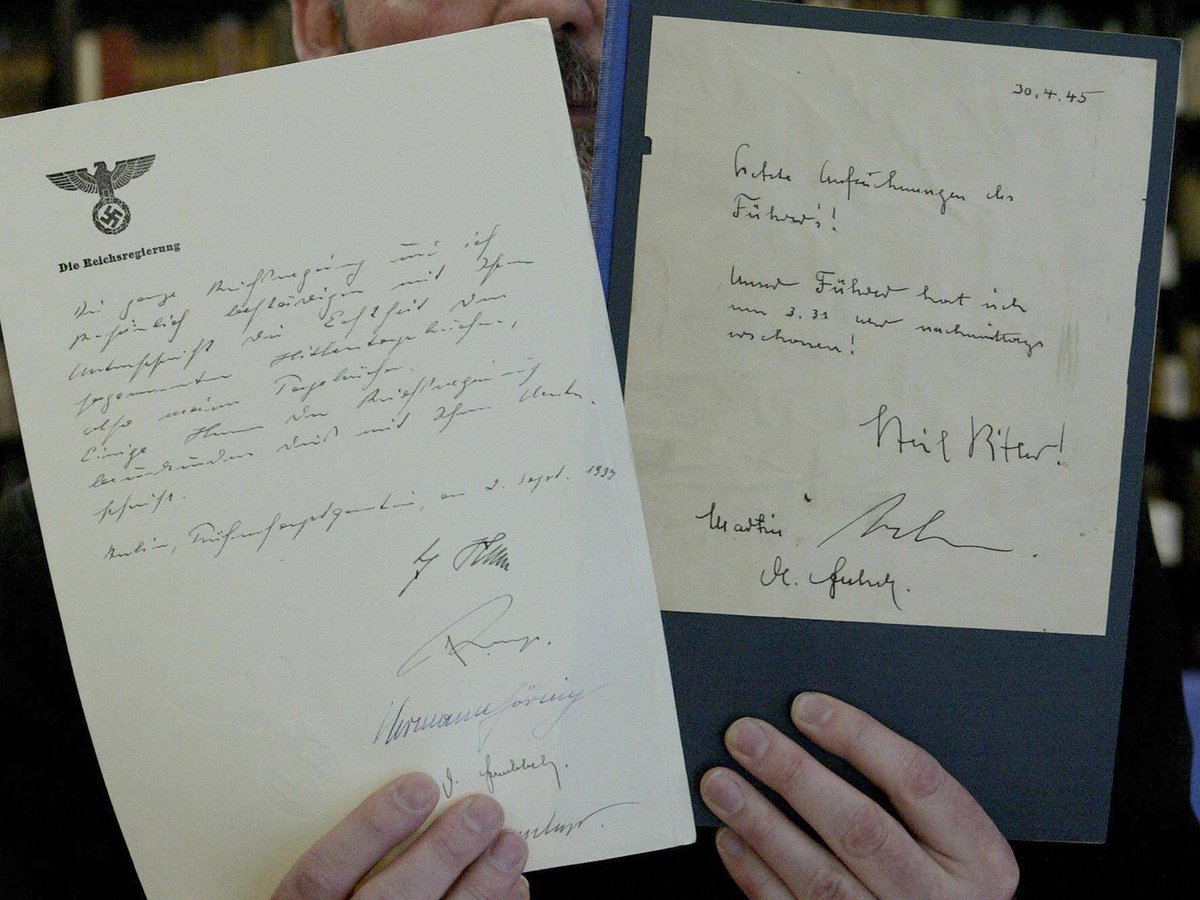 Die Reichsregierung
Die ganze Reichsregierung und ich
persönlich bestätigen mit Ihrer
Unterschrift die Echtheit der
sogenannten Hitlertagebücher,
also meiner Tagebücher.
Einige Herren der Reichsregierung
beurkunden dies mit Ihrer Unter-
schrift.
Berlin, Führerhauptquartier, am 2. Sept. 1939
Hermann Göring
30.4.45
Letzte Aufzeichnungen des
Führer's!
Unser Führer hat sich
um 3.31 Uhr nachmittags
erschossen!
Heil Hitler!
Martin